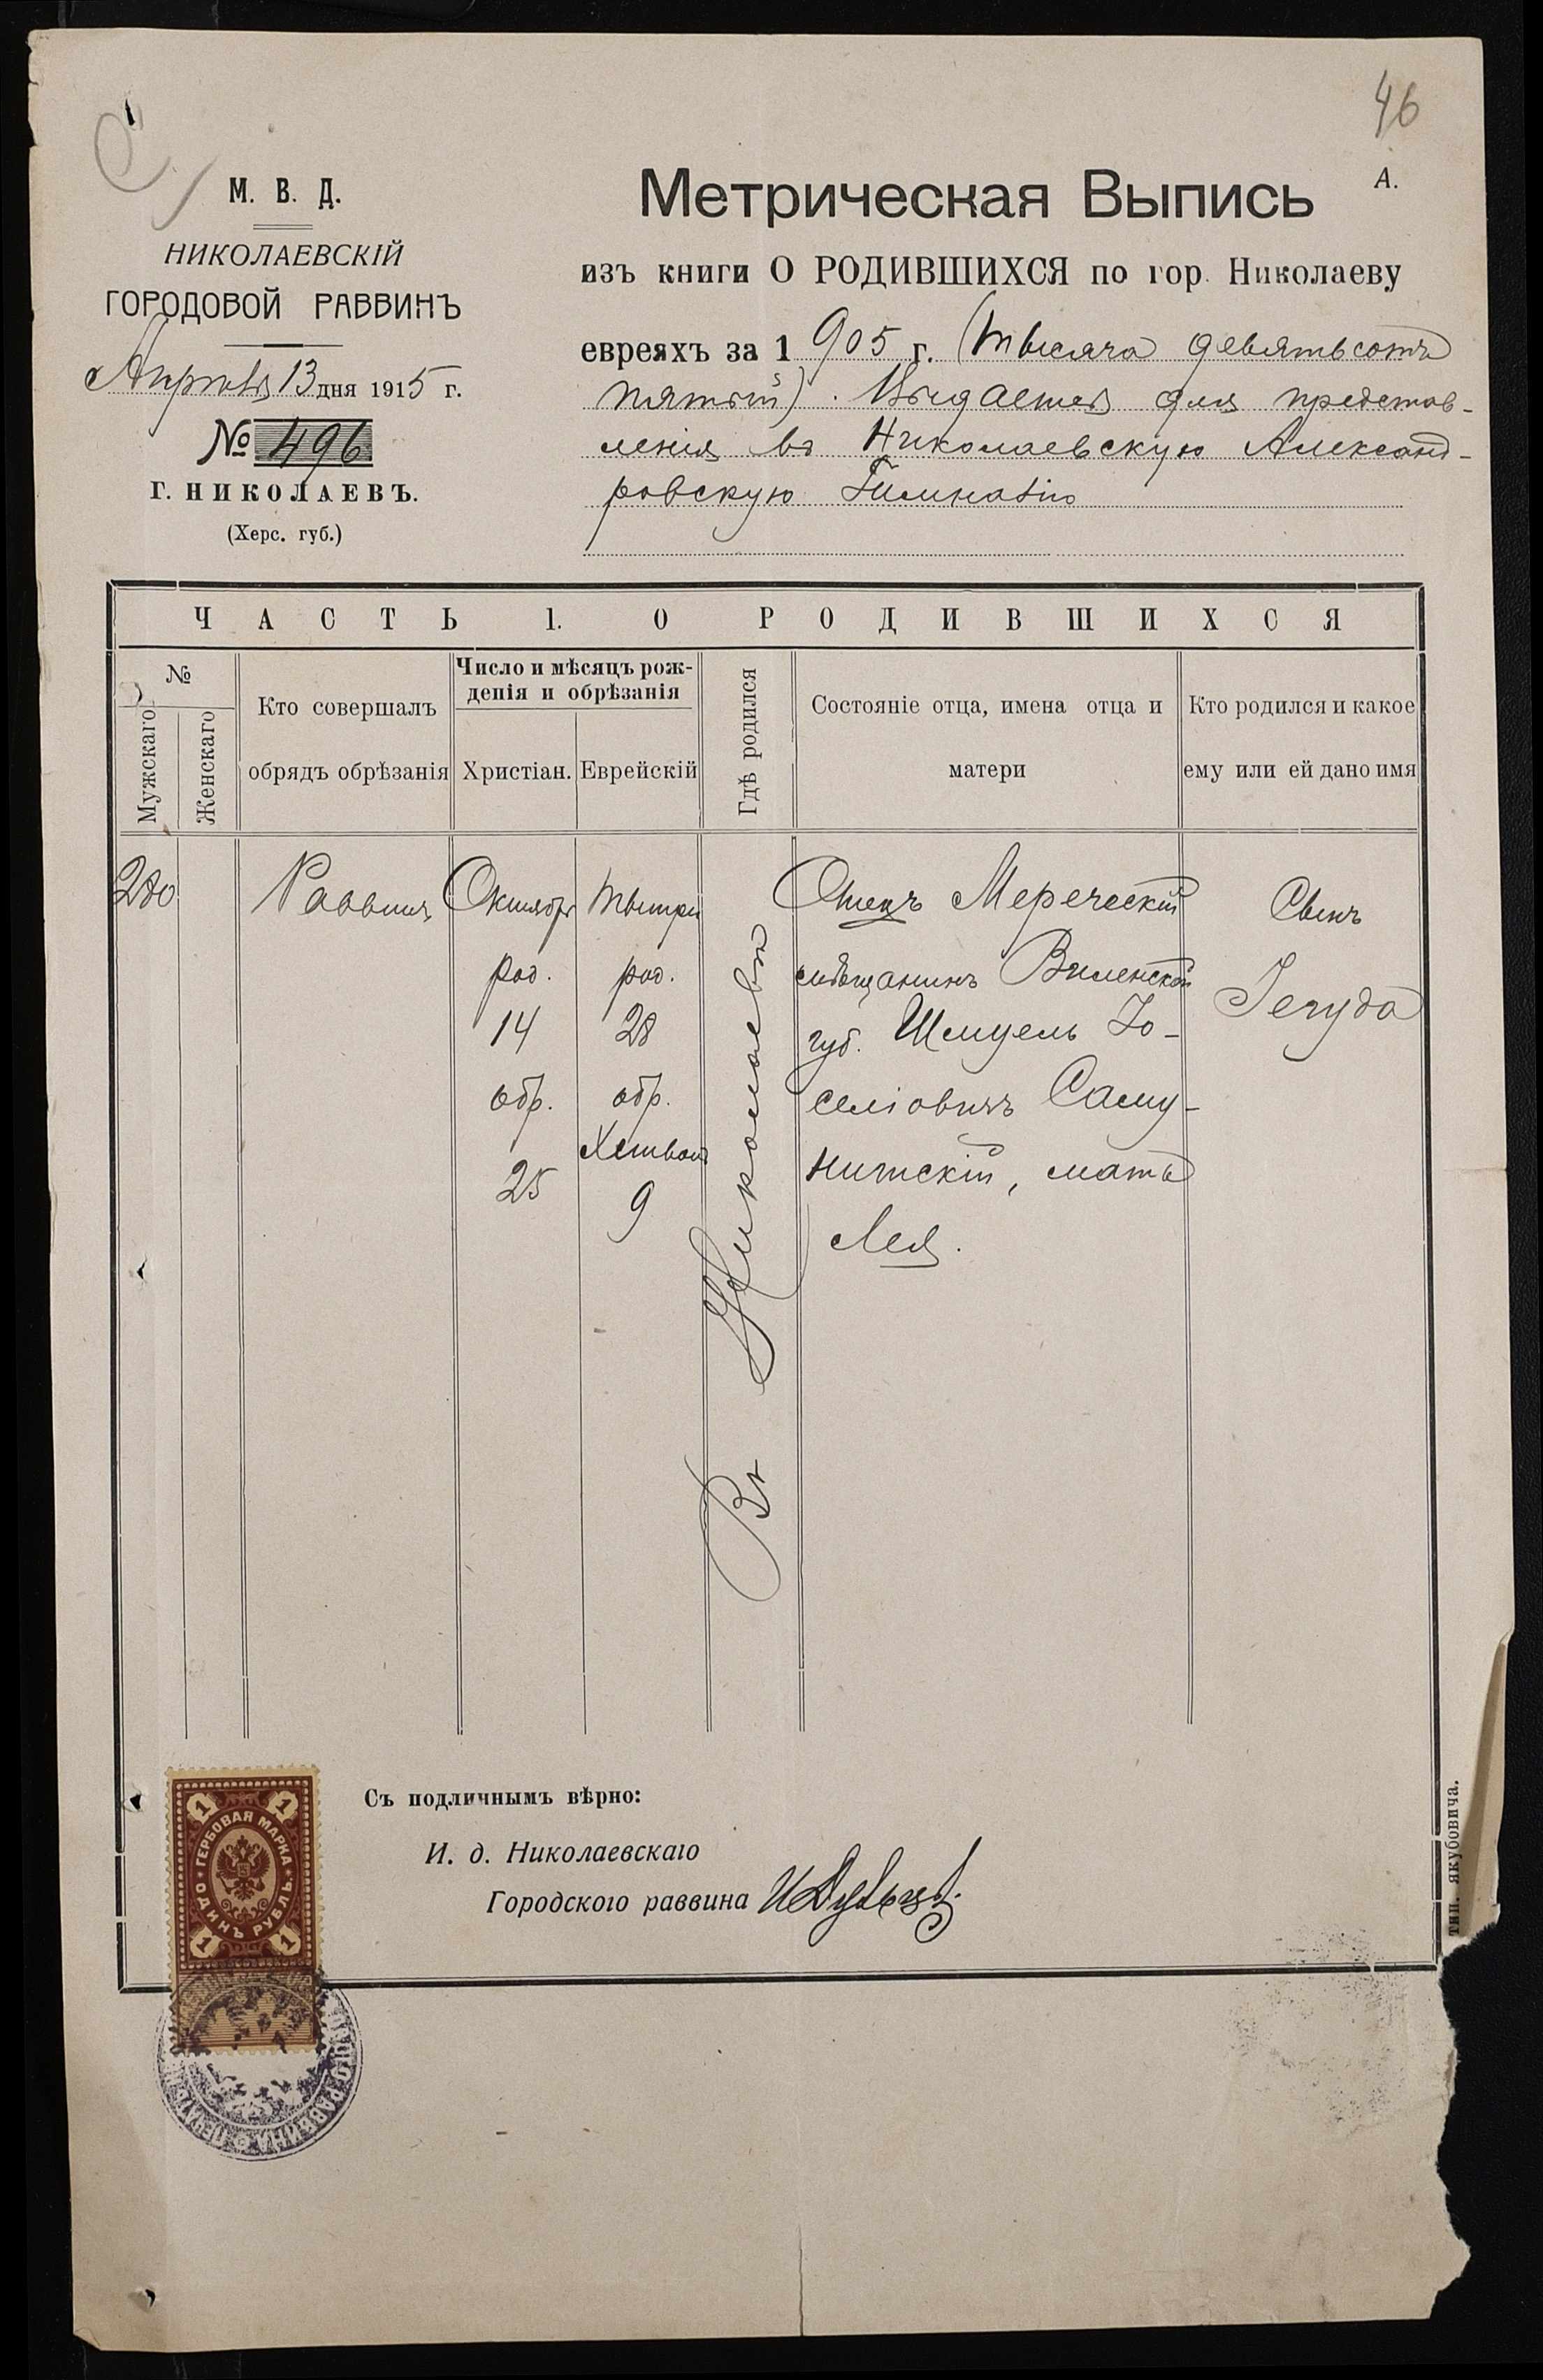 46
А.
М. В. Д.
НИКОЛАЕВСКІЙ
ГОРОДОВОЙ РАВВИНЪ
Апрѣля 13 дня 1915 г.
№ 496
Г. НИКОЛАЕВЪ.
(Херс. губ.)
Метрическая Выпись
изъ книги О РОДИВШИХСЯ по гор. Николаеву
евреяхъ за 1905 г. (тысяча девятьсотъ
пятый). Выдается для представ-
ленія въ Николаевскую Александ-
ровскую Гимназію
ЧАСТЬ 1. О РОДИВШИХСЯ
№
Мужскаго
Женскаго
Кто совершалъ
обрядъ обрѣзанія
Число и мѣсяцъ рож-
денія и обрѣзанія
Христіан.
Еврейскій
Гдѣ родился
Состояніе отца, имена отца и
матери
Кто родился и какое
ему или ей дано имя
280
Раввинъ
Октября
род.
14
обр.
25
Тышри
род.
28
обр.
Хешвонъ
9
Въ Николаевѣ
Отецъ Мереческій
мѣщанинъ Виленской
губ. Шмуель Іо-
селіовичъ Саму-
нитскій, мать
Лея.
Сынъ
Іегуда
Съ подличнымъ вѣрно:
И. д. Николаевскаго
Городского раввина
1 1
ГЕРБОВАЯ МАРКА
ОДИНЪ РУБЛЬ
1 1
РАВВИНА
тип. якубовича.